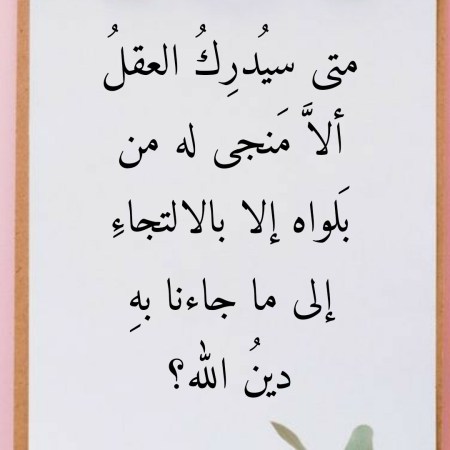 متى سيُدرِكُ العقلُ
ألاَّ مَنجى له من
بَلواه إلا بالالتجاءِ
إلى ما جاءنا بهِ
دينُ الله؟